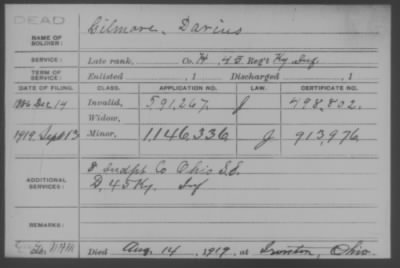 DEAD
NAME OF SOLDIER: Gilmore, Darius
SERVICE: Late rank, Co. H, 45 Reg't Ky. Inf.
TERM OF SERVICE: Enlisted , 1 Discharged , 1
DATE OF FILING. CLASS. APPLICATION NO. LAW. CERTIFICATE NO.
1886 Dec 14 Invalid, 591,267. J 498,802.
Widow,
1919 Sept 13 Minor, 1,146,336 J 913,976
ADDITIONAL SERVICES: 8 Indpt Co Ohio S.S.
D, 45 Ky. Inf
REMARKS:
Died Aug. 14, 1919, at Ironton, Ohio.